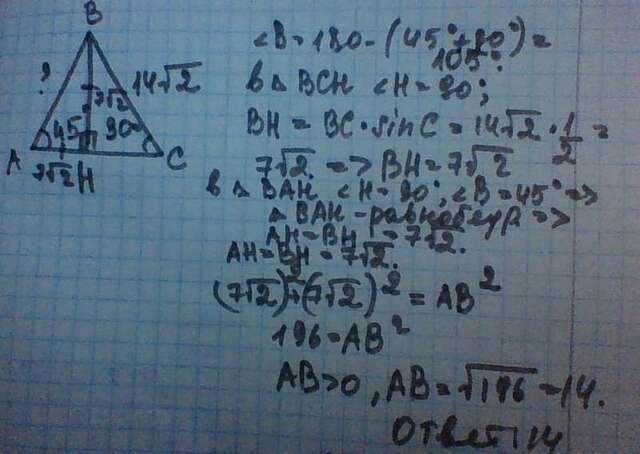 B
?
14√2
7√2
45
30°
A
7√2
H
C
<B=180-(45°+30°)=
105°.
в △ BCH <H=90°;
BH = BC·sinC = 14√2·1/2 =
7√2. => BH=7√2
в △ BAH <H=90°; <B=45° =>
△ BAH-равнобедр =>
AH=BH = 7√2.
AH=BH=7√2.
(7√2)²+(7√2)² = AB²
196=AB²
AB>0, AB=√196=14.
Ответ: 14